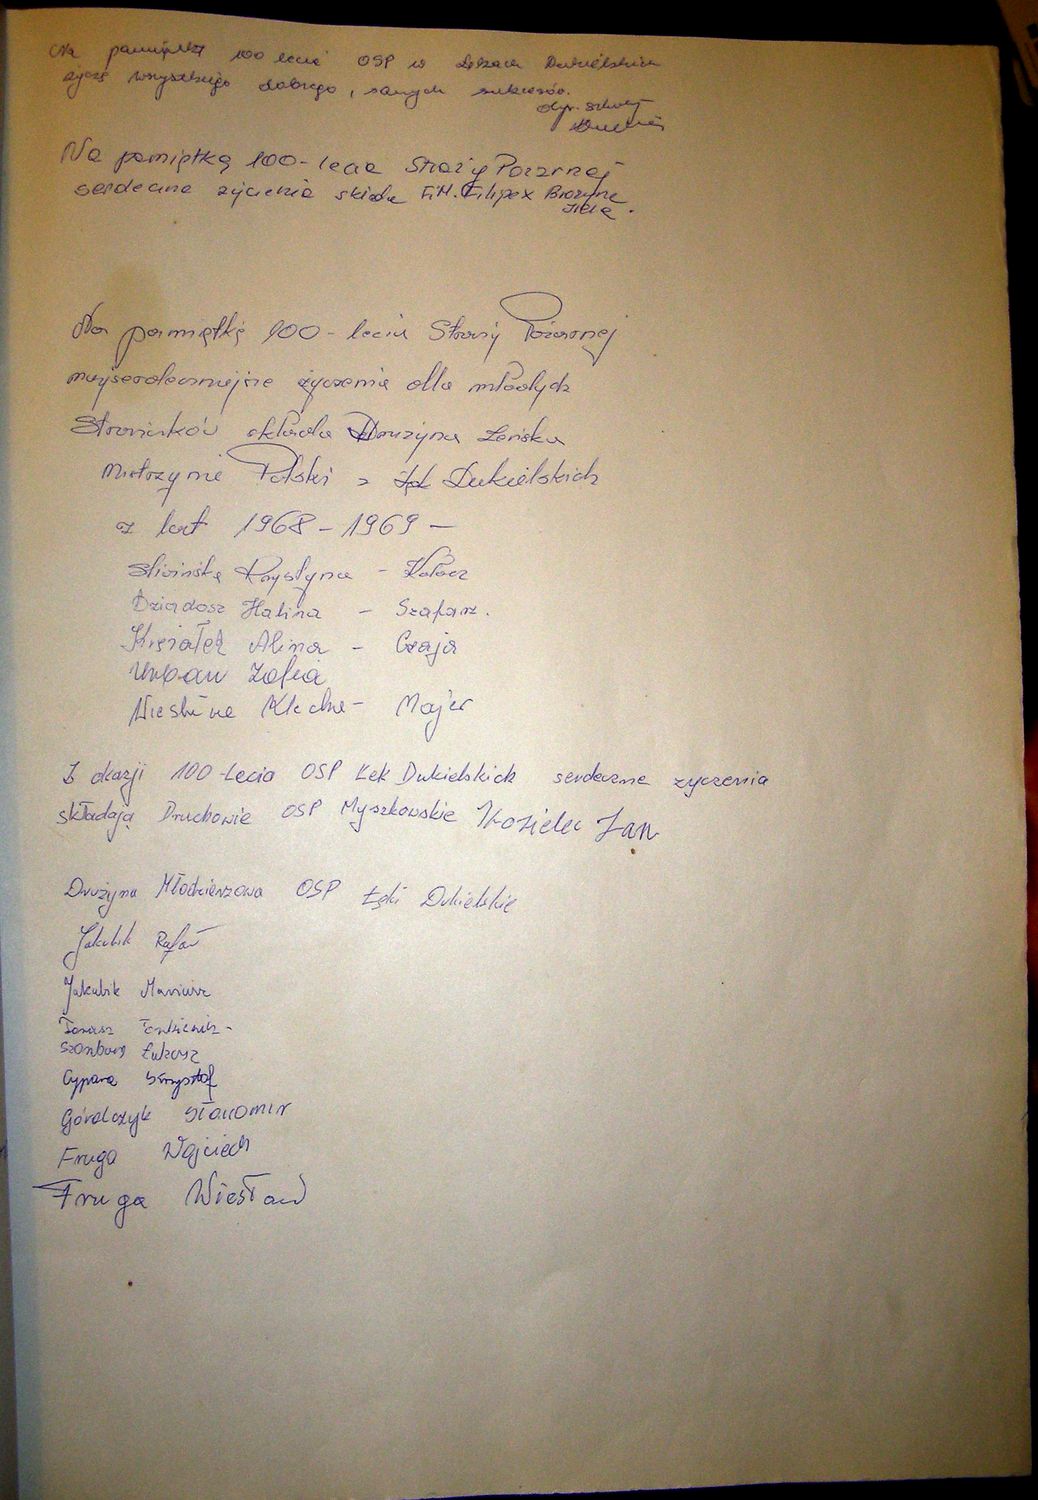 Na pamiątkę 100 lecia OSP w Łękach Dukielskich
życzę wszystkiego dobrego, samych sukcesów.
dyr. szkoły
Na pamiątkę 100-lecia Straży Pożarnej
serdeczne życzenia składa F.H. Filipex Brożyna
Na pamiątkę 100-lecia Straży Pożarnej
najserdeczniejsze życzenia dla młodych
Strażaków składa Drużyna Żeńska
Mistrzynie Polski z Łęk Dukielskich
z lat 1968-1969-
Śliwińska Krystyna -
Dziadosz Halina - Szafarz.
Książek Alina - Czaja
Urban Zofia
- Majer
Z okazji 100-Lecia OSP Łęk Dukielskich serdeczne życzenia
składają Druchowie OSP Myszkowskie Kozielec Jan
Drużyna Młodzieżowa OSP Łęki Dukielskie
Jakubik Rafał
Jakubik Mariusz
Tomasz
Szombara Łukasz
Cypara Krzysztof
Góralczyk Sławomir
Fruga Wojciech
Fruga Wiesław